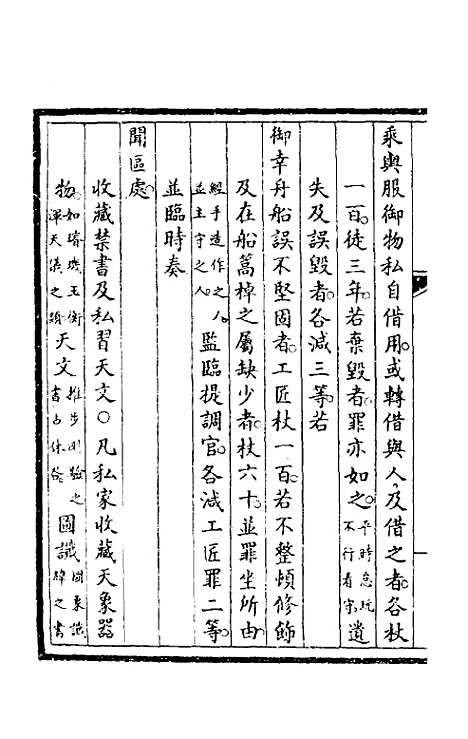 乘輿服御物私自借用或轉借與人及借之者各杖
一百徒三年若棄毀者罪亦如之平時怠玩不行看守遺
失及誤毀者各減三等若
御幸舟船誤不堅固者工匠杖一百若不整頓修飾
及在船篙棹之屬缺少者杖六十並罪坐所由
經手造作之人並主守之人監臨提調官各減工匠罪二等
並臨時奏
聞區處
收藏禁書及私習天文○凡私家收藏天象器
物如璿璣玉衡渾天儀之類天文推步測驗之書占休咎圖讖圖象讖緯之書